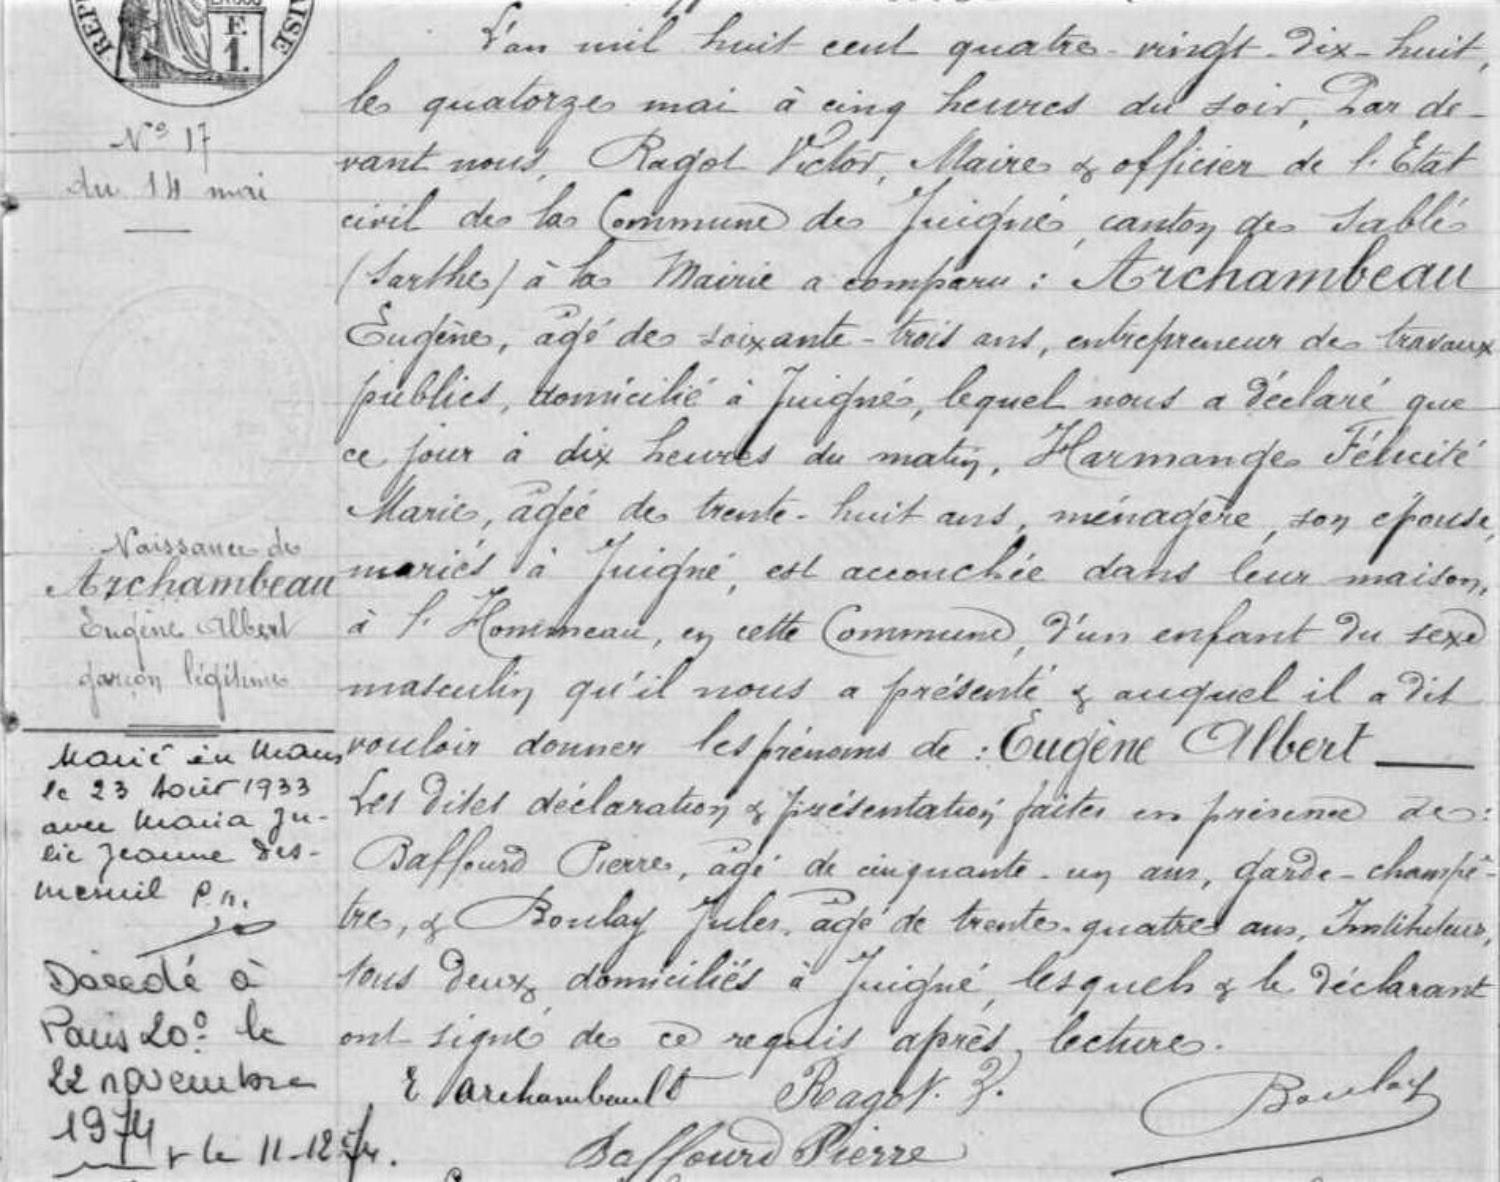 N° 17
du 14 mai
Naissance de
Archambeau
Eugène Albert
garçon légitime
Marié au Mans
le 23 Août 1933
avec Maria Ju-
lie Jeanne Des-
mesnil P.n.
Décédé à
Paris 20e le
22 novembre
1974
le 11-12-74.
L'an mil huit cent quatre-vingt-dix-huit,
le quatorze mai à cinq heures du soir, Par de-
vant nous, Ragot Victor, Maire & officier de l'Etat
civil de la Commune de Juigné, canton de Sablé
(Sarthe) à la Mairie a comparu : Archambeau
Eugène, âgé de soixante-trois ans, entrepreneur de travaux
publics, domicilié à Juigné, lequel nous a déclaré que
ce jour à dix heures du matin, Harmange Félicité
Marie, âgée de trente-huit ans, ménagère, son épouse,
mariés à Juigné, est accouchée dans leur maison,
à l'Hommeau, en cette Commune, d'un enfant du sexe
masculin qu'il nous a présenté & auquel il a dit
vouloir donner les prénoms de : Eugène Albert
Les dites déclaration & présentation faites en présence de :
Baffourd Pierre, âgé de cinquante-un ans, garde-champê-
tre, & Boulay Jules, âgé de trente-quatre ans, Instituteur,
tous deux domiciliés à Juigné, lesquels & le déclarant
ont signé de ce requis après lecture.
E Archambault Ragot. V. Boulay
Baffourd Pierre